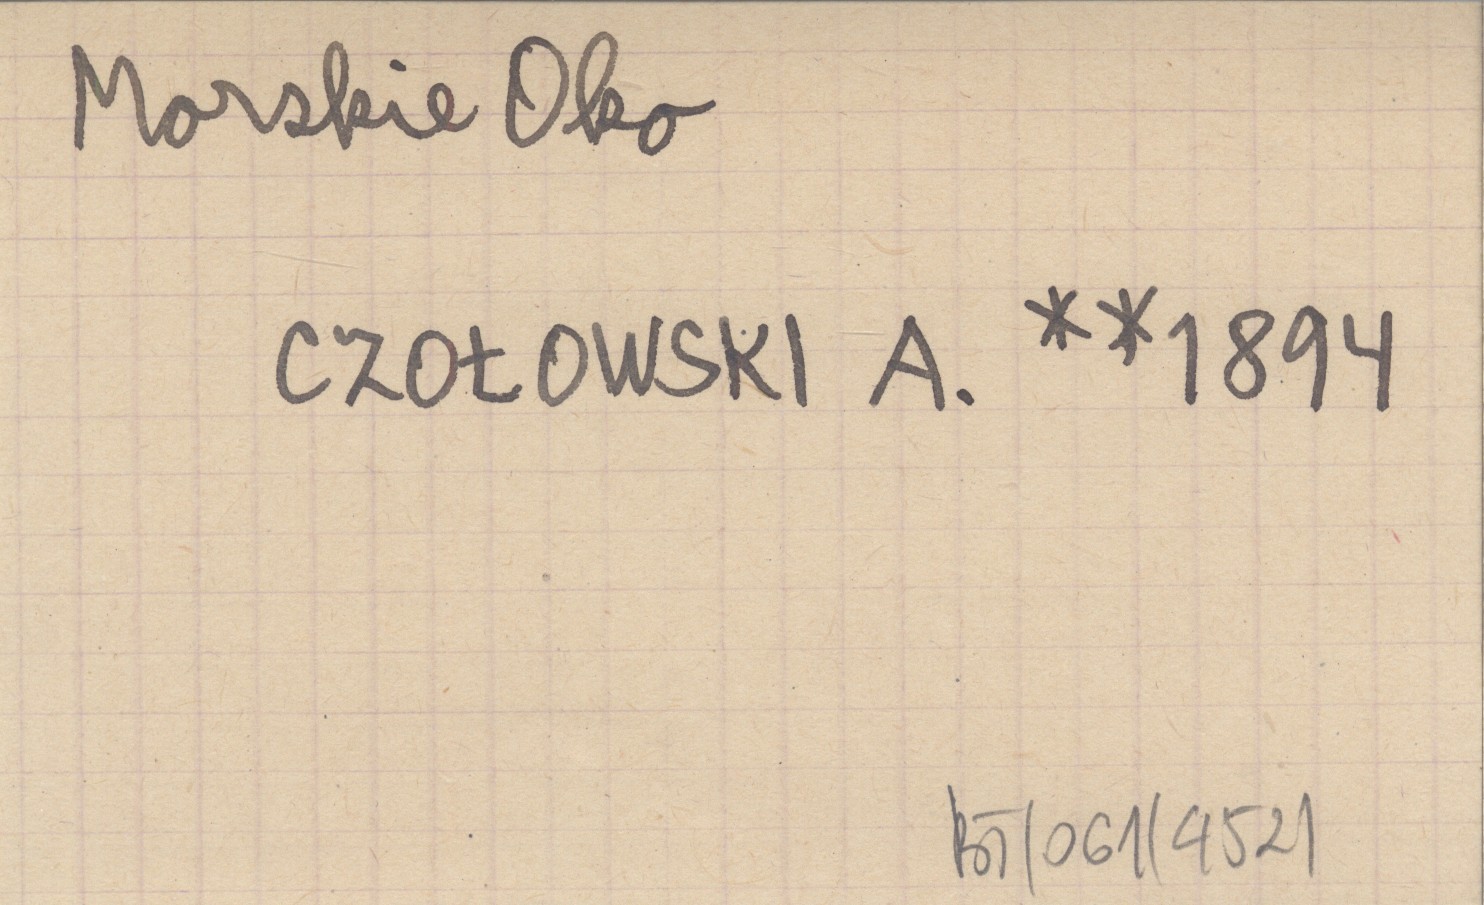 Morskie Oko
CZOŁOWSKI A. **1894
BT/061/4521